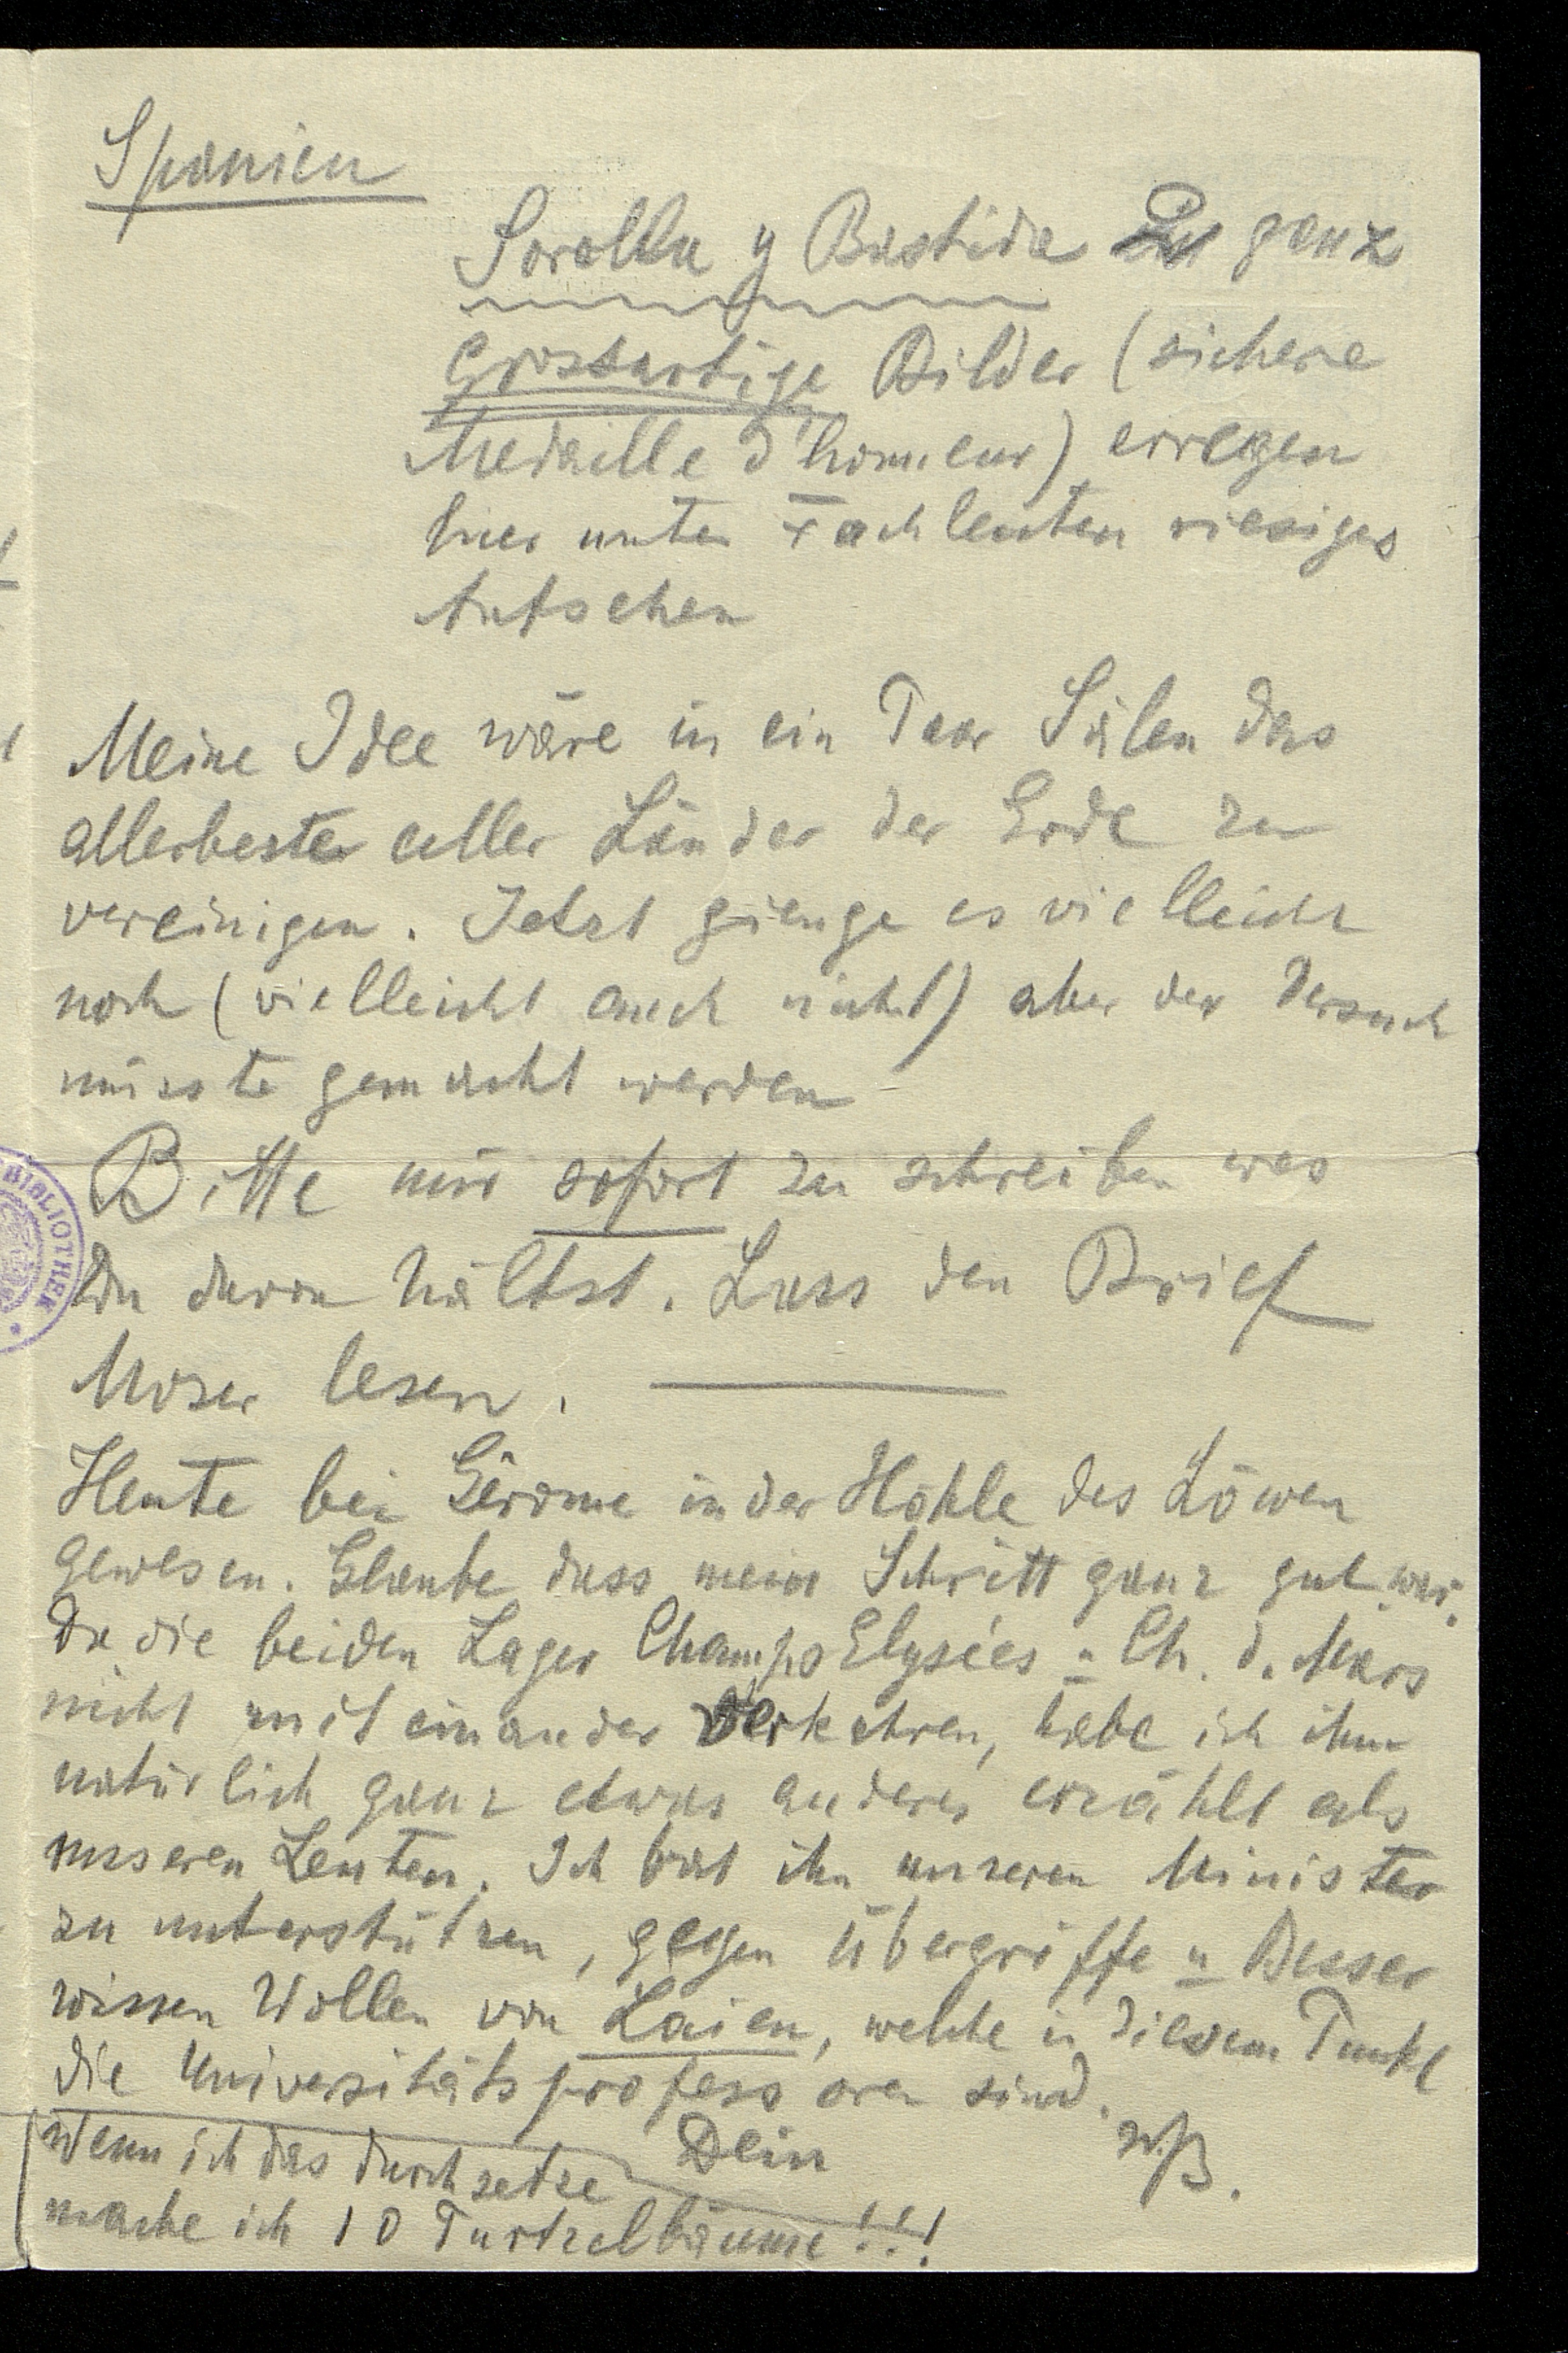 Spanien
Sorolla y Bastida ganz
grossartige Bilder (sichere
Medaille d'honneur) erregen
hier unter Fachleuten riesiges
Aufsehen
Meine Idee wäre in ein Paar Sälen das
allerbeste aller Länder der Erde zu
vereinigen. Jetzt gienge es vielleicht
noch (vielleicht auch nicht) aber der Versuch
müsste gemacht werden
Bitte mir sofort zu schreiben was
Du davon hältst. Lass den Brief
Moser lesen.
Heute bei Gérome in der Höhle des Löwen
gewesen. Glaube dass mein Schritt ganz gut war.
Da die beiden Lager Champs Elysées u Ch. d. Mars
nicht miteinander verkehren, habe ich ihm
natürlich ganz etwas anderes erzählt als
unseren Leuten. Ich bat ihn unseren Minister
zu unterstützen, gegen Übergriffe u Besser
wissen Wollen von Laien, welche in diesem Punkt
die Universitätsprofessoren sind.
Dein
Wenn ich das durchsetze
mache ich 10 Purtzelbäume!!!
BIBLIOTHEK